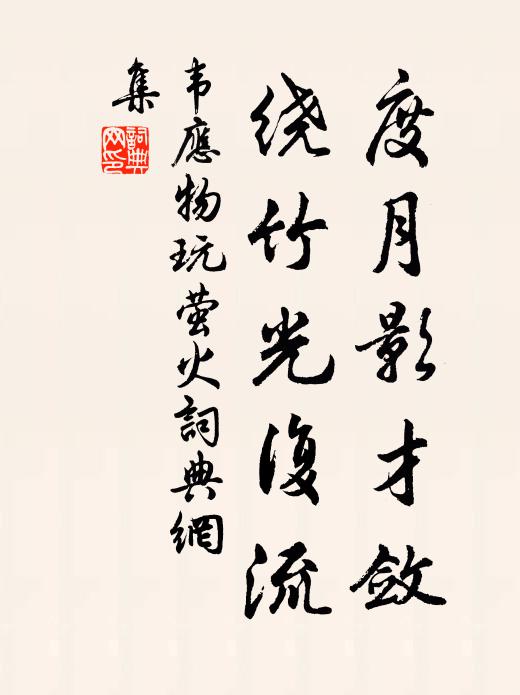 度月影才斂
绕竹光復流
韦應物玩萤火詞典網
集
詞典网印